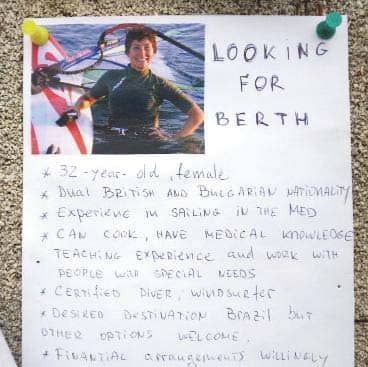 LOOKING
FOR
BERTH
* 32-year-old, female
* DUAL BRITISH AND BULGARIAN NATIONALITY
* EXPERIENE IN SAILING IN THE MED
* CAN COOK, HAVE MEDICAL KNOWLEDGE
TEACHING EXPERIENCE and WORK WITH
PEOPLE WITH SPECIAL NEEDS
* CERTIFIED DIVER, WINDSURFER
* DESIRED DESTINATION BRAZIL but
OTHER OPTIONS WELCOME.
* FINANTIAL arrangements WILLINGLY